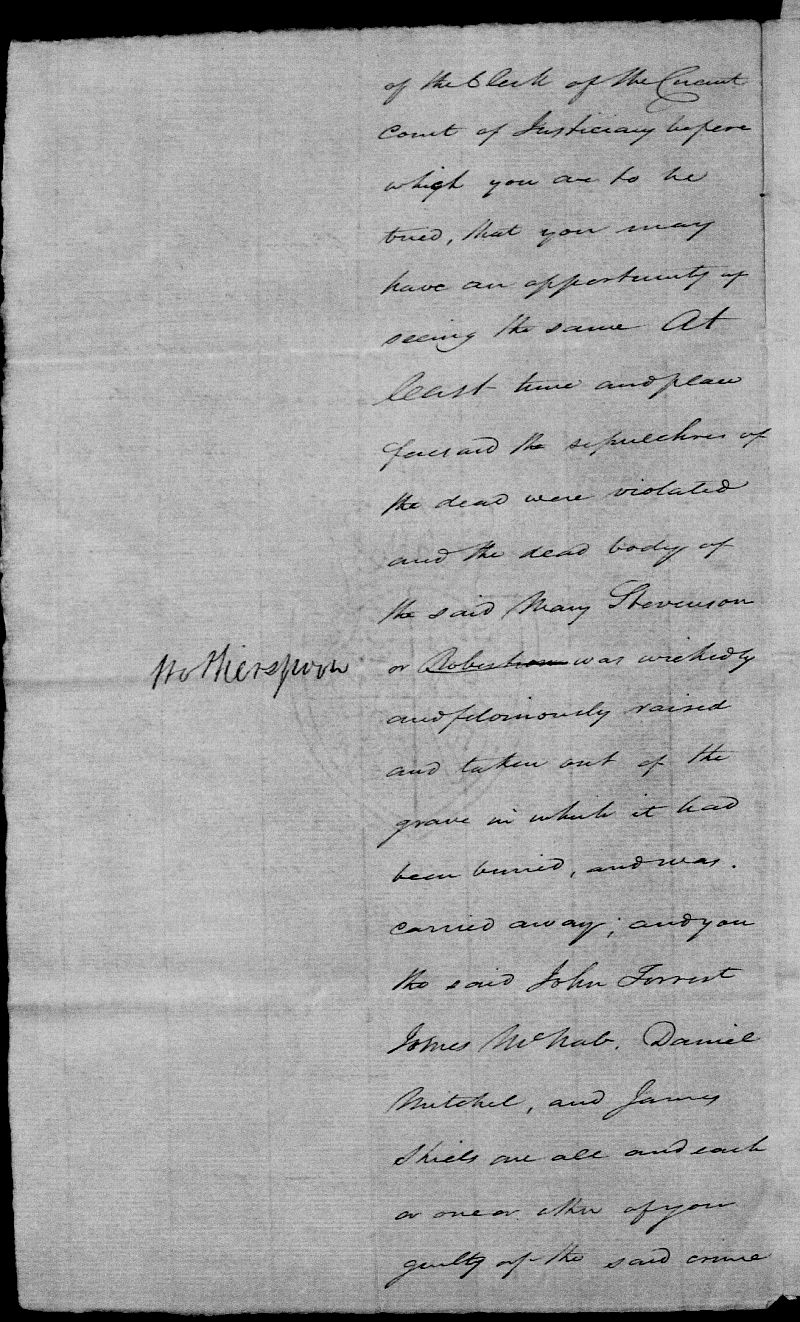 of the Clerk of the Circuit
Court of Justiciary before
which you are to be
tried, that you may
have an opportunity of
seeing the same At
least time and place
foresaid the sepulchres of
the dead were violated
and the dead body of
the said Mary Stevenson
Wotherspoon
or Robertson was wickedly
and feloniously raised
and taken out of the
grave in which it had
been buried, and was.
carried away; and you
the said John Forrest
James McNab. Daniel
Mitchel, and James
Shiels are all and each
or one or other of you
guilty of the said crime